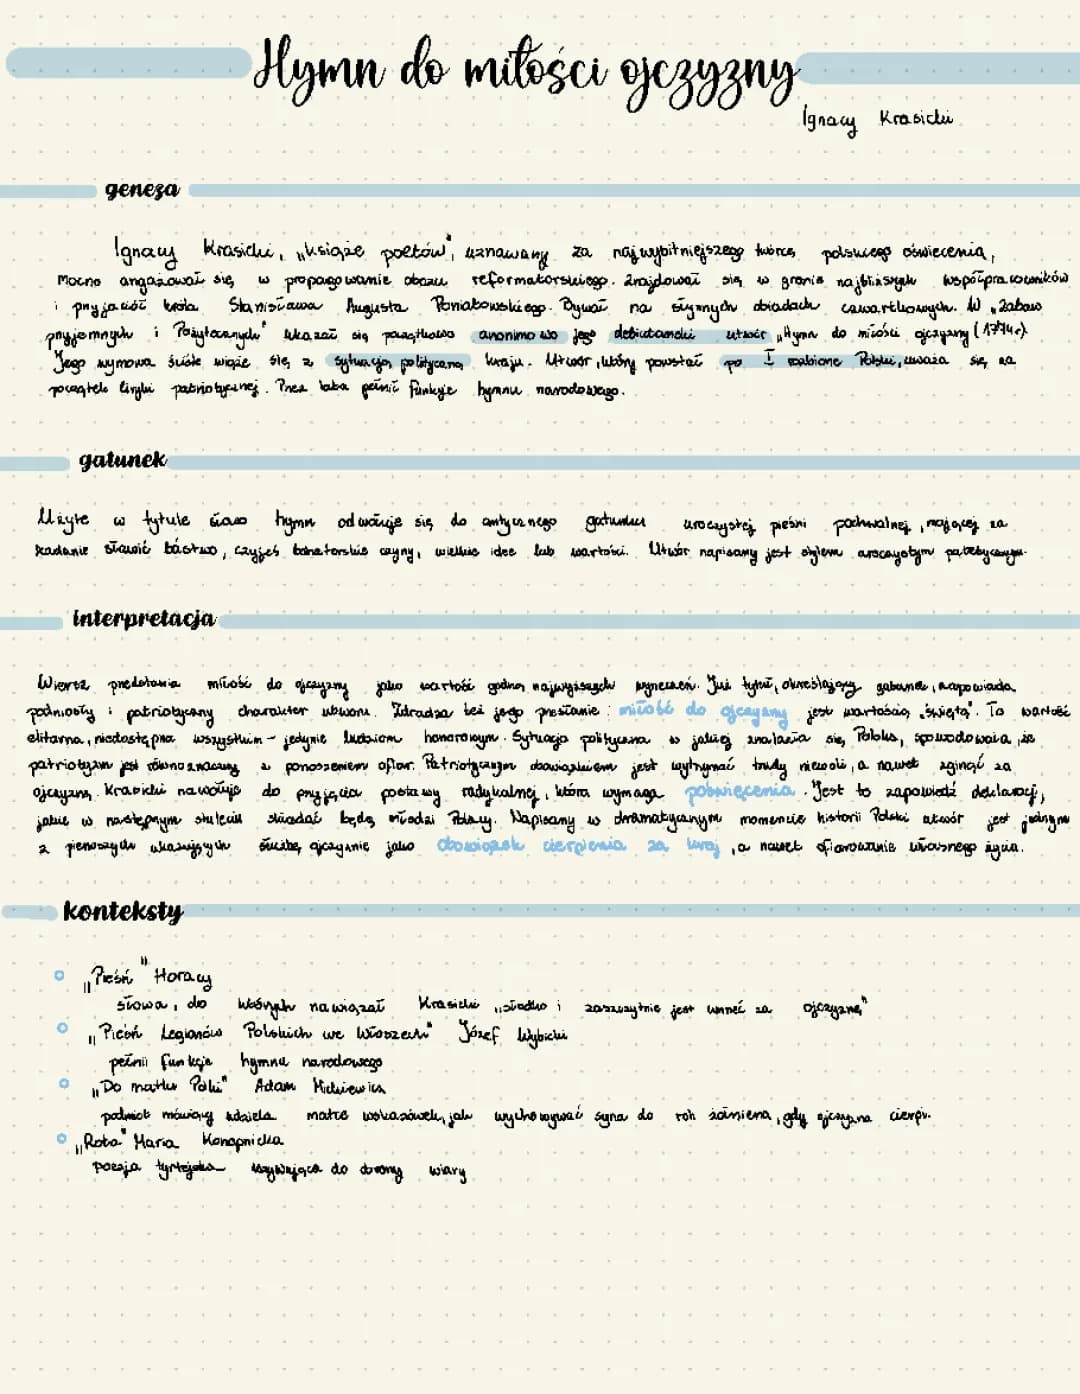 Hymn do miłości ojczyzny
Ignacy Krasicki
geneza
Ignacy Krasicki, „książe poetów", uznawany za najwybitniejszego twórcę polskiego oświecenia,
Mocno angażował się w propagowanie obozu reformatorskiego. Znajdował się w gronie najbliższych współpracowników
i przyjaciół króla Stanisława Augusta Poniatowskiego. Bywał na słynnych obiadach czwartkowych. W „Zabaw
przyjemnych i Pożytecznych" ukazał się początkowo anonimowo jego debiutancki utwór „Hymn do miłości ojczyzny (1774r).
Jego wymowa ściśle wiąże się z sytuacją polityczną kraju. Utwór, który powstał po I rozbiorze Polski, uważa się za
początek liryki patriotycznej. Przez lata pełnił funkcje hymnu narodowego.
gatunek
Użyte w tytule słowo hymn odwołuje się do antycznego gatunku uroczystej pieśni pochwalnej, mającej za
zadanie sławić bóstwo, czyjeś bohaterskie czyny, wielkie idee lub wartości. Utwór napisany jest stylem uroczystym patetycznym.
interpretacja
Wiersz przedstawia miłość do ojczyzny jako wartość godną najwyższych wyrzeczeń. Już tytuł, określający gatunek, zapowiada
podniosły i patriotyczny charakter utworu. Zdradza też jego przesłanie: miłość do ojczyzny jest wartością „świętą". To wartość
elitarna, niedostępna wszystkim - jedynie ludziom honorowym. Sytuacja polityczna w jakiej znalazła się Polska, spowodowała, że
patriotyzm jest równoznaczny z ponoszeniem ofiar. Patriotycznym obowiązkiem jest wytrzymać trudy niewoli, a nawet zginąć za
ojczyznę. Krasicki nawołuje do przyjęcia postawy radykalnej, która wymaga poświęcenia. Jest to zapowiedź deklaracji,
jakie w następnym stuleciu składać będą młodzi Polacy. Napisany w dramatycznym momencie historii Polski utwór jest jednym
z pierwszych ukazujących służbę ojczyźnie jako obowiązek cierpienia za kraj, a nawet ofiarowanie własnego życia.
konteksty
„Pieśń" Horacy
słowa, do których nawiązał Krasicki „słodko i zaszczytnie jest umrzeć za ojczyznę"
„Pieśń Legionów Polskich we Włoszech" Józef Wybicki
pełnii funkcje hymnu narodowego
„Do matki Polki" Adam Mickiewicz
podmiot mówiący udziela matce wskazówek, jak wychowywać syna do roli żołnierza, gdy ojczyzna cierpi.
„Rota" Maria Konopnicka
poezja tyrtejska wzywająca do obrony wiary